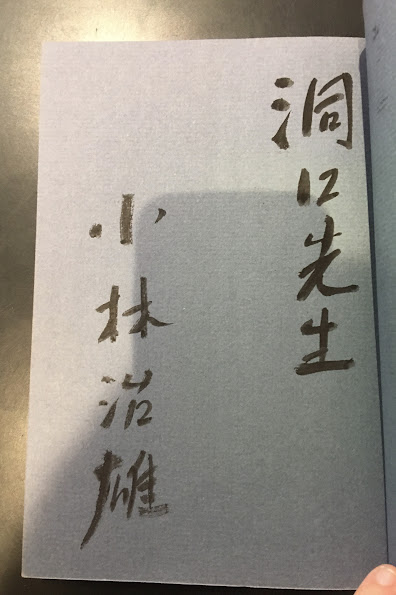 洞口先生
小林治雄